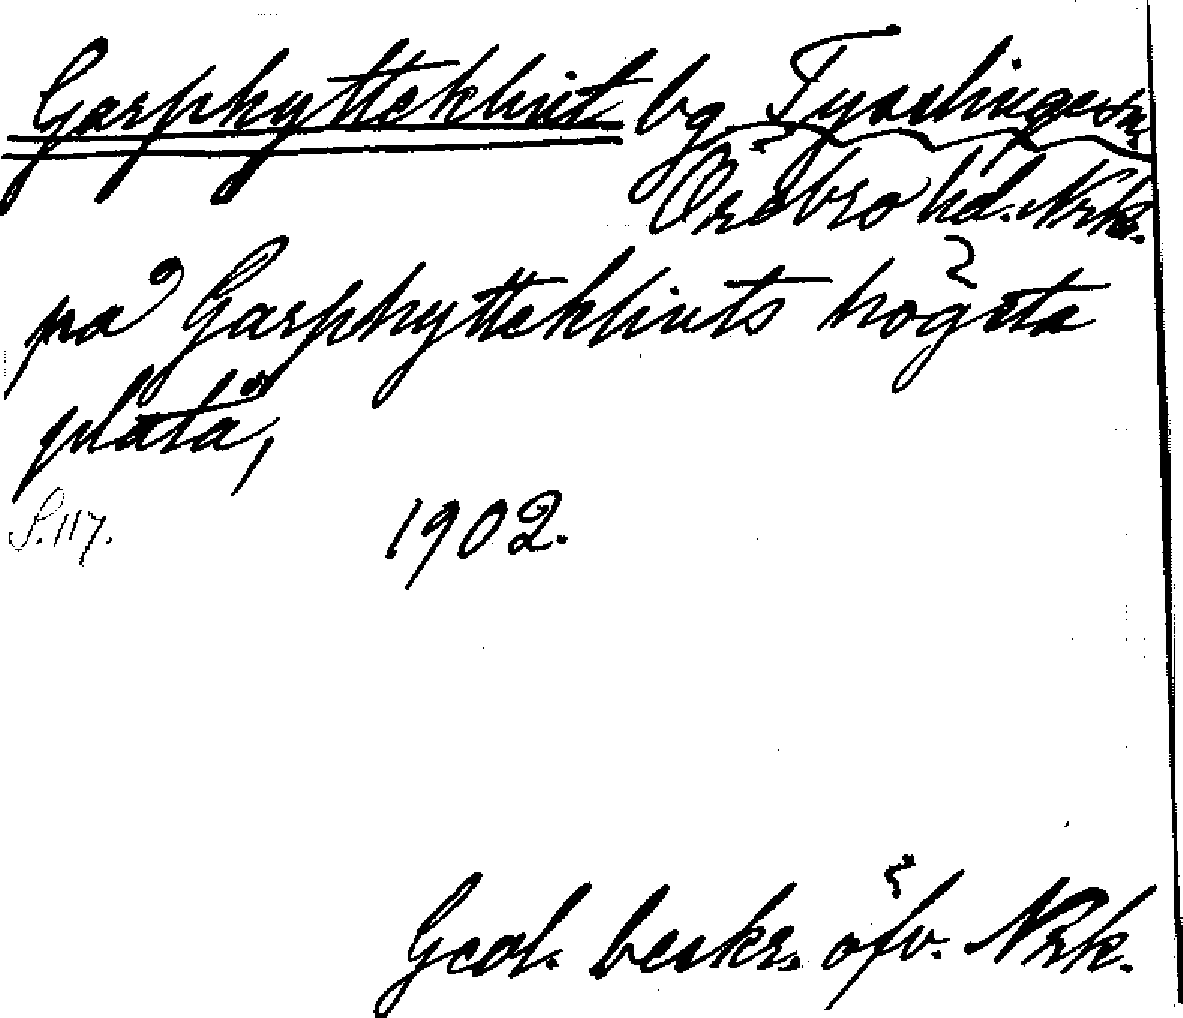 Garphytteklint bg Tysslinge sn.
Örebro hd. Nrk.
på Garphytteklints högsta
platå,
S. 117. 1902.
Geol. beskr. öfv. Nrk.